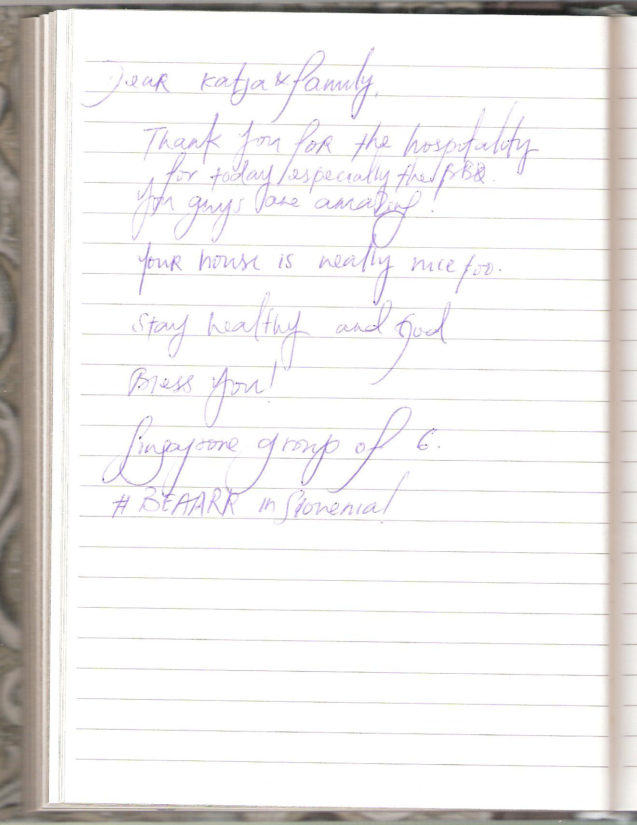 Dear Katja & family,
Thank you for the hospitality
for today especially the BBQ.
You guys are amazing!
Your house is really nice too.
Stay healthy and God
Bless you!
Singapore group of 6.
# BEAARR in Slovenia!